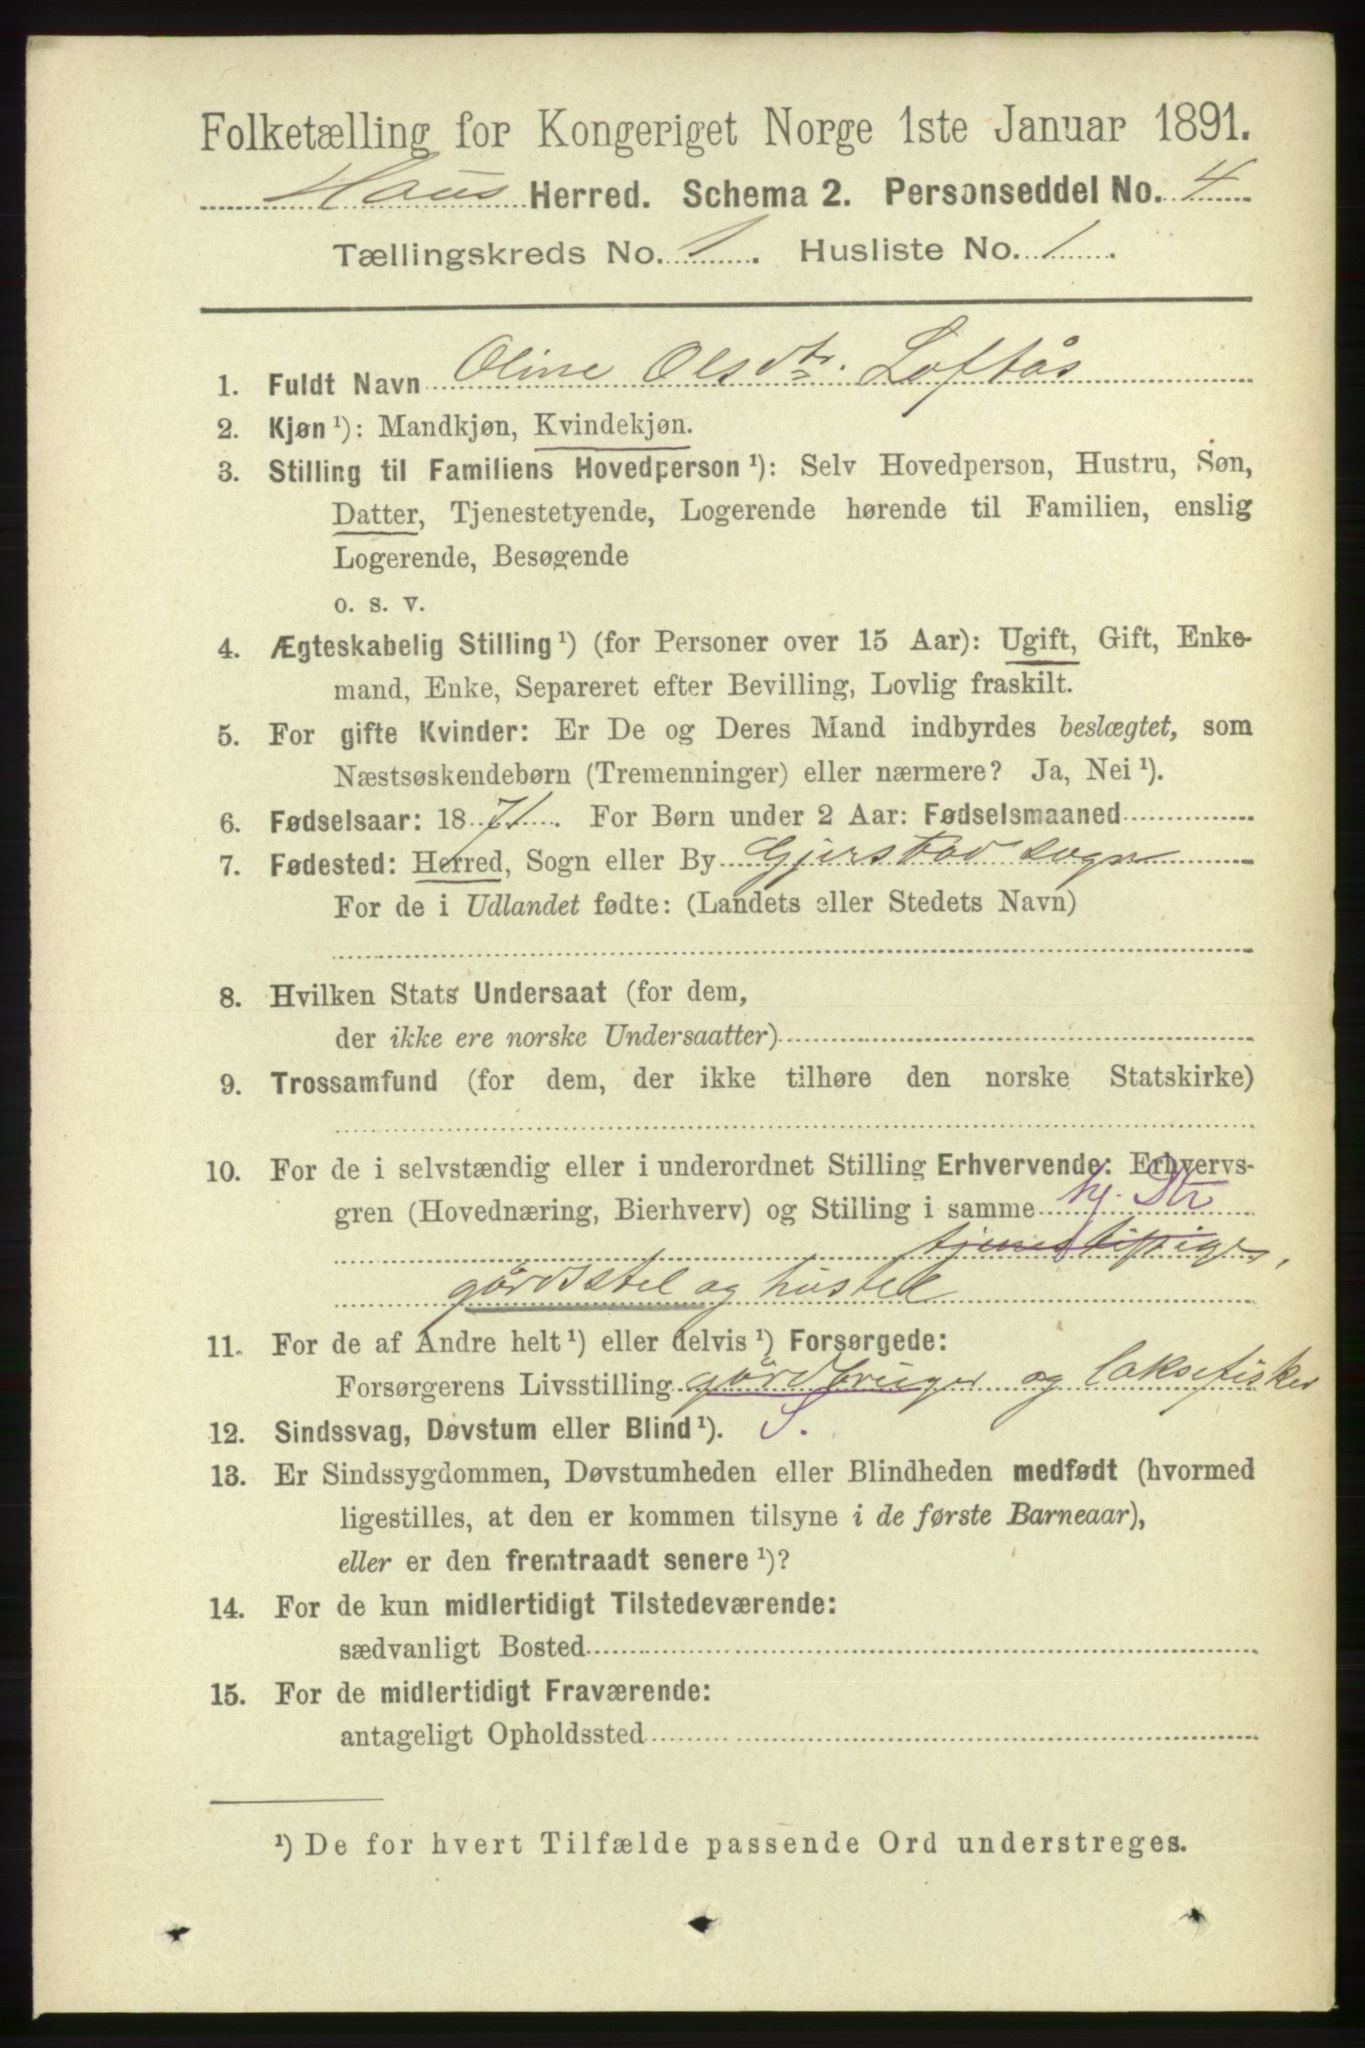 Folketælling for Kongeriget Norge 1ste Januar 1891.
Haus Herred. Schema 2. Personseddel No. 4
Tællingskreds No. 1. Husliste No. 1.
1. Fuldt Navn Oline Olsdtr. Loftås
2. Kjøn ¹): Mandkjøn, Kvindekjøn.
3. Stilling til Familiens Hovedperson ¹): Selv Hovedperson, Hustru, Søn,
Datter, Tjenestetyende, Logerende hørende til Familien, enslig
Logerende, Besøgende
o. s. v.
4. Ægteskabelig Stilling ¹) (for Personer over 15 Aar): Ugift, Gift, Enke-
mand, Enke, Separeret efter Bevilling, Lovlig fraskilt.
5. For gifte Kvinder: Er De og Deres Mand indbyrdes beslægtet, som
Næstsøskendebørn (Tremenninger) eller nærmere? Ja, Nei ¹).
6. Fødselsaar: 1871. For Børn under 2 Aar: Fødselsmaaned
7. Fødested: Herred, Sogn eller By Gjerstad sogn
For de i Udlandet fødte: (Landets eller Stedets Navn)
8. Hvilken Stats Undersaat (for dem,
der ikke ere norske Undersaatter)
9. Trossamfund (for dem, der ikke tilhøre den norske Statskirke)
10. For de i selvstændig eller i underordnet Stilling Erhvervende: Erhvervs-
gren (Hovednæring, Bierhverv) og Stilling i samme hj. Dtr
tjenestepige,
gårdsstel og husstel
11. For de af Andre helt ¹) eller delvis ¹) Forsørgede:
Forsørgerens Livsstilling gårdbruger og laksefisker
12. Sindssvag, Døvstum eller Blind ¹). S.
13. Er Sindssygdommen, Døvstumheden eller Blindheden medfødt (hvormed
ligestilles, at den er kommen tilsyne i de første Barneaar),
eller er den fremtraadt senere ¹)?
14. For de kun midlertidigt Tilstedeværende:
sædvanligt Bosted
15. For de midlertidigt Fraværende:
antageligt Opholdssted
¹) De for hvert Tilfælde passende Ord understreges.